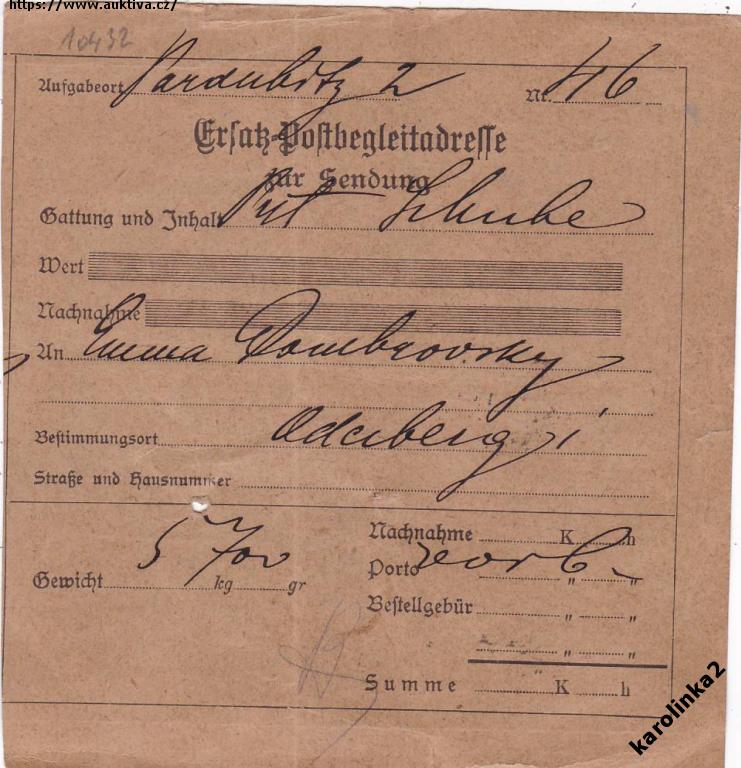 https://www.auktiva.cz/
10432
Aufgabeort Pardubitz 2 Nr. 46
Ersatz-Postbegleitadresse
zur Sendung
Gattung und Inhalt Pkt Schuhe
Wert
Nachnahme
An Emma Dombrovsky
Bestimmungsort Oderberg
Straße und Hausnummer
Nachnahme K h
Gewicht 5 kg 700 gr
Porto " "
Bestellgebür " "
" "
Summe K h
karolinka2